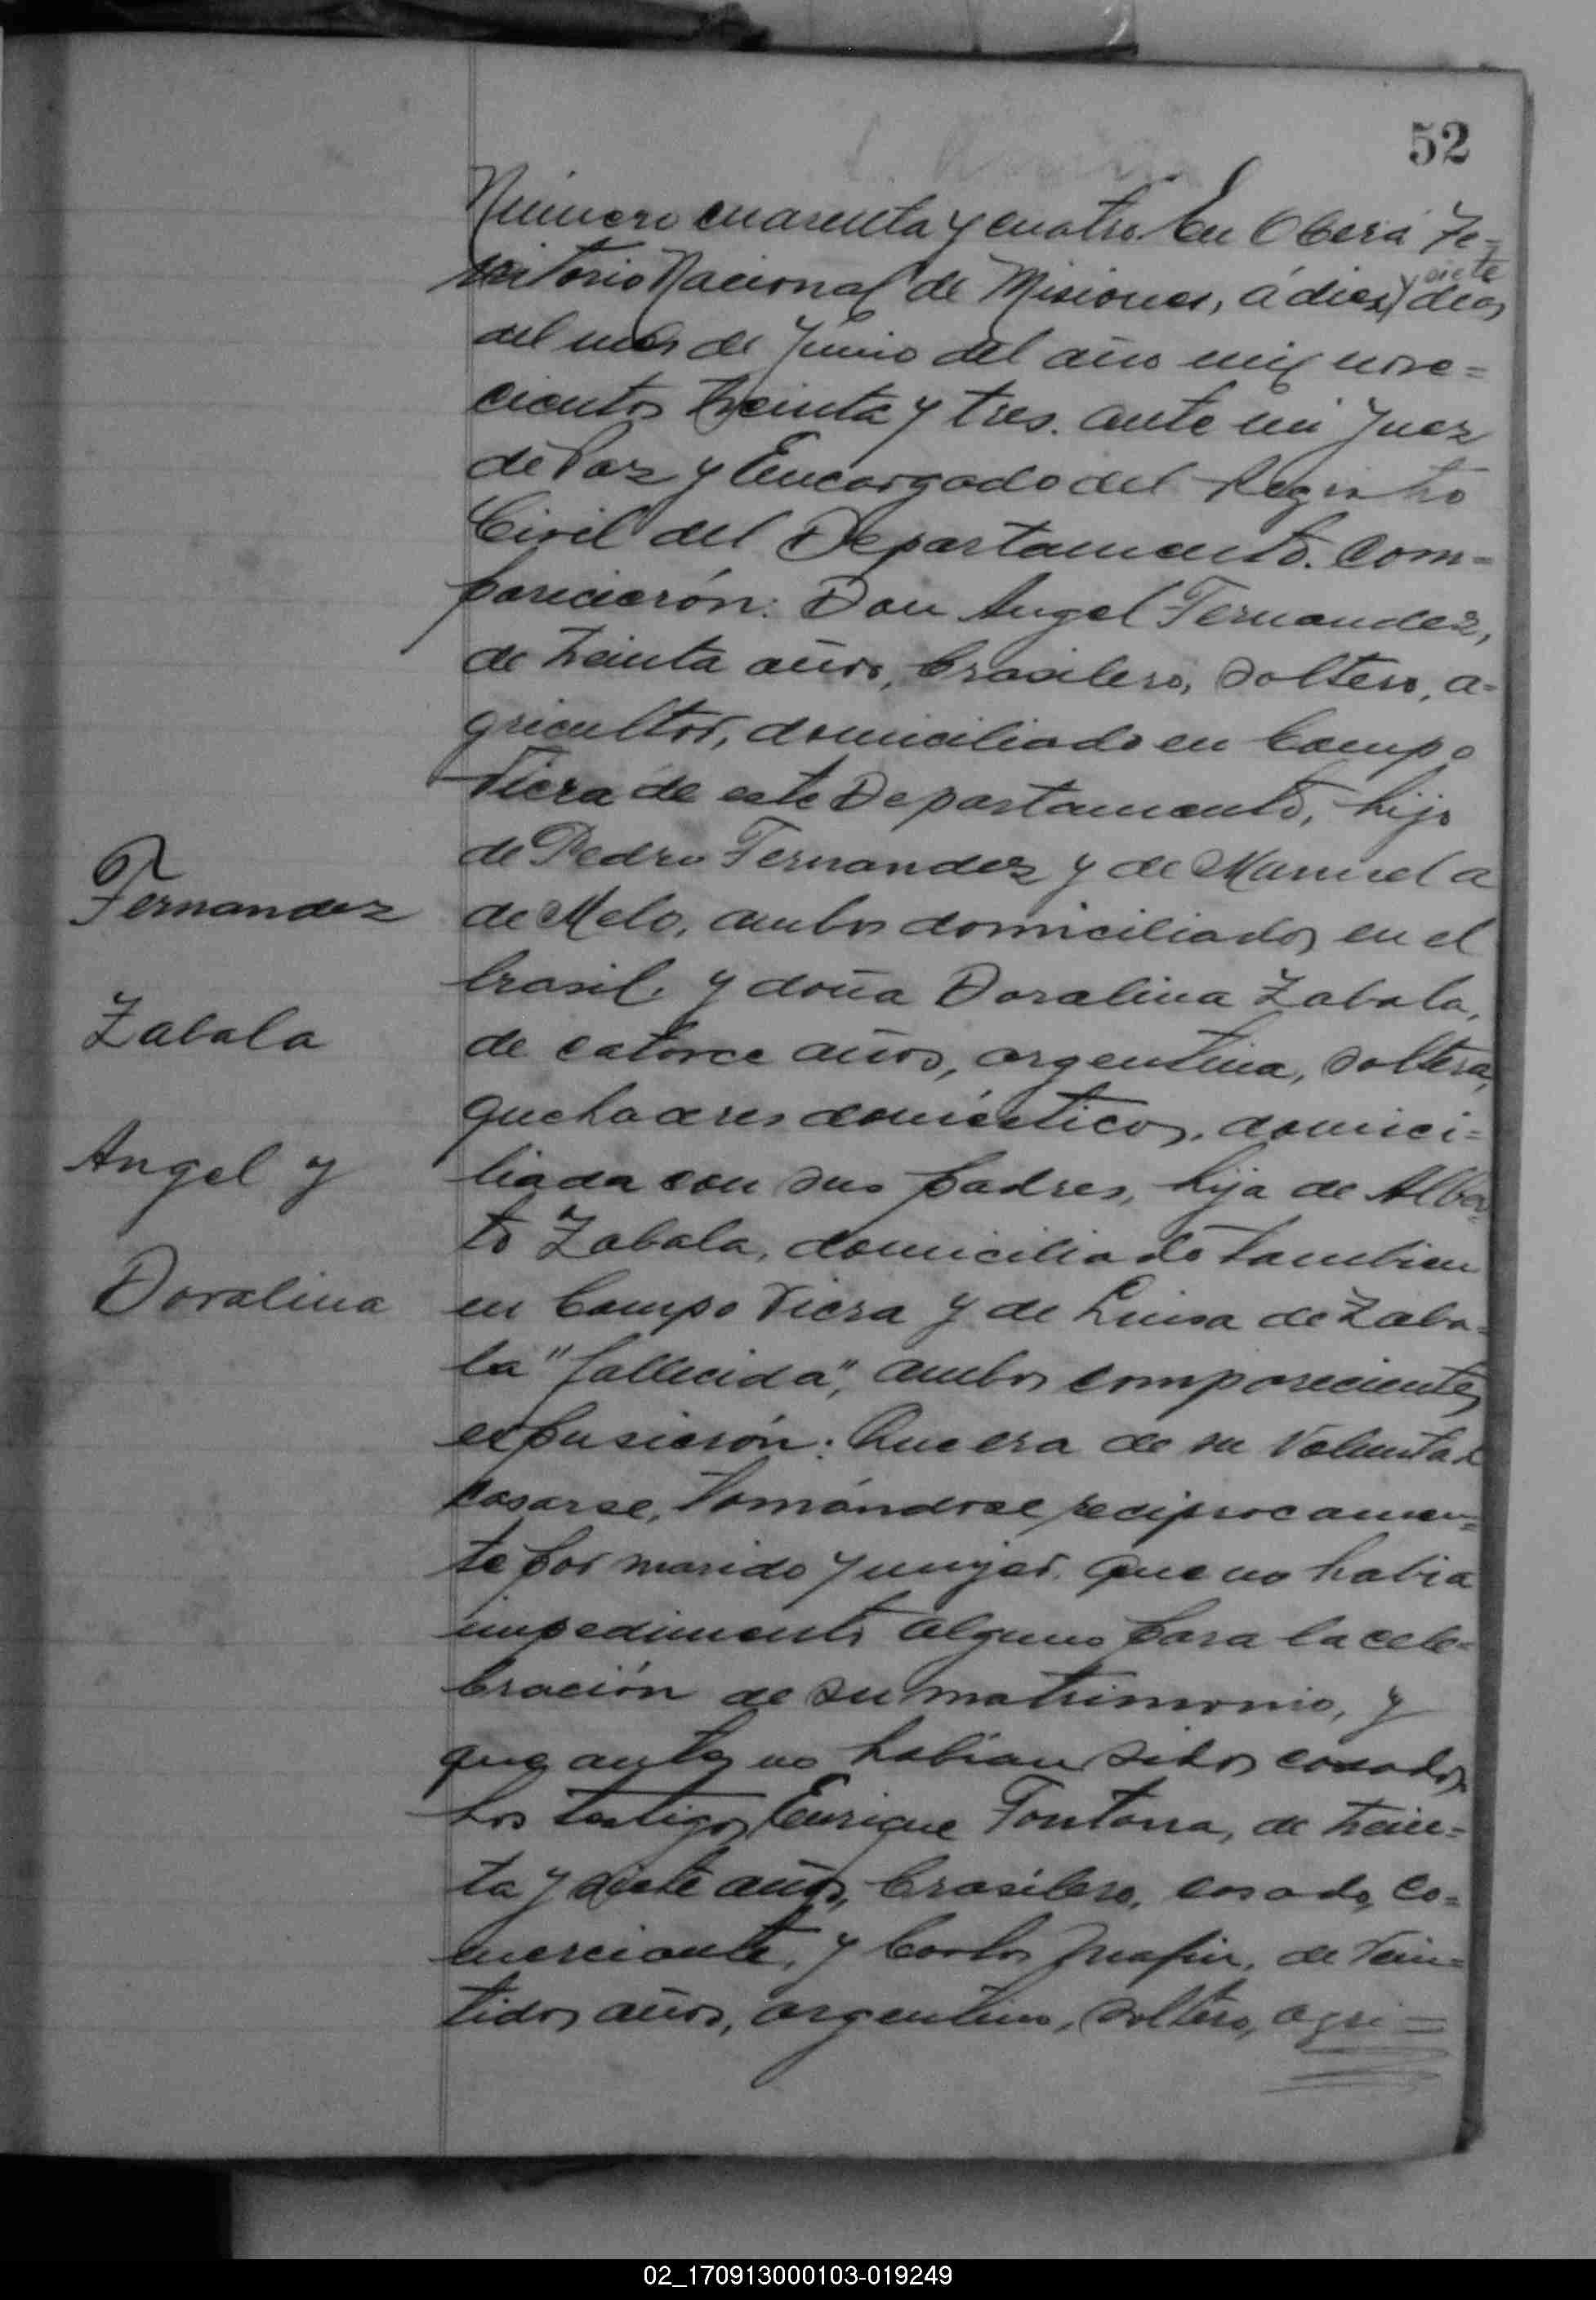 52
Número cuarenta y cuatro. En Oberá Te=
rritorio Nacional de Misiones, á diez y siete dias
del mes de Junio del año mil nove=
cientos treinta y tres. ante mi Juez
de Paz y Encargado del Registro
Civil del Departamento. Com=
parecierón: Don Angel Fernandez,
de treinta años, brasilero, soltero, a=
gricultor, domiciliado en Campo
Viera de este Departamento, hijo
de Pedro Fernandez y de Manuela
de Melo, ambos domiciliados en el
brasil. y doña Doralina Zabala,
de catorce años, argentina, soltera,
quehaceres domésticos, domici=
liada con sus padres, hija de Alber=
to Zabala, domiciliado tambien
en Campo Viera y de Luisa de Zaba=
la "fallecida", ambos comparecientes
expusierón: Que era de su Voluntad
casarse, tomándose reciprocamen=
te por marido y mujer. que no habia
impedimento alguno para la cele=
bración de su matrimonio, y
que antes no habian sidos casados.
Los testigos Enrique Fontana, de trein=
ta y siete años, brasilero, casado, co=
merciante, y Carlos de vein=
tidos años, argentino, soltero, agri=
Fernandez
Zabala
Angel y
Doralina
02_170913000103-019249